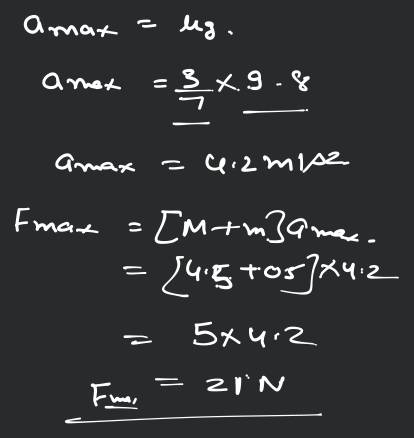 amax = μg.
amax = 3/7 × 9.8
amax = 4.2 m/s2
Fmax = [M+m]amax.
= [4.5+05]×4.2
= 5×4.2
Fm, = 21 N